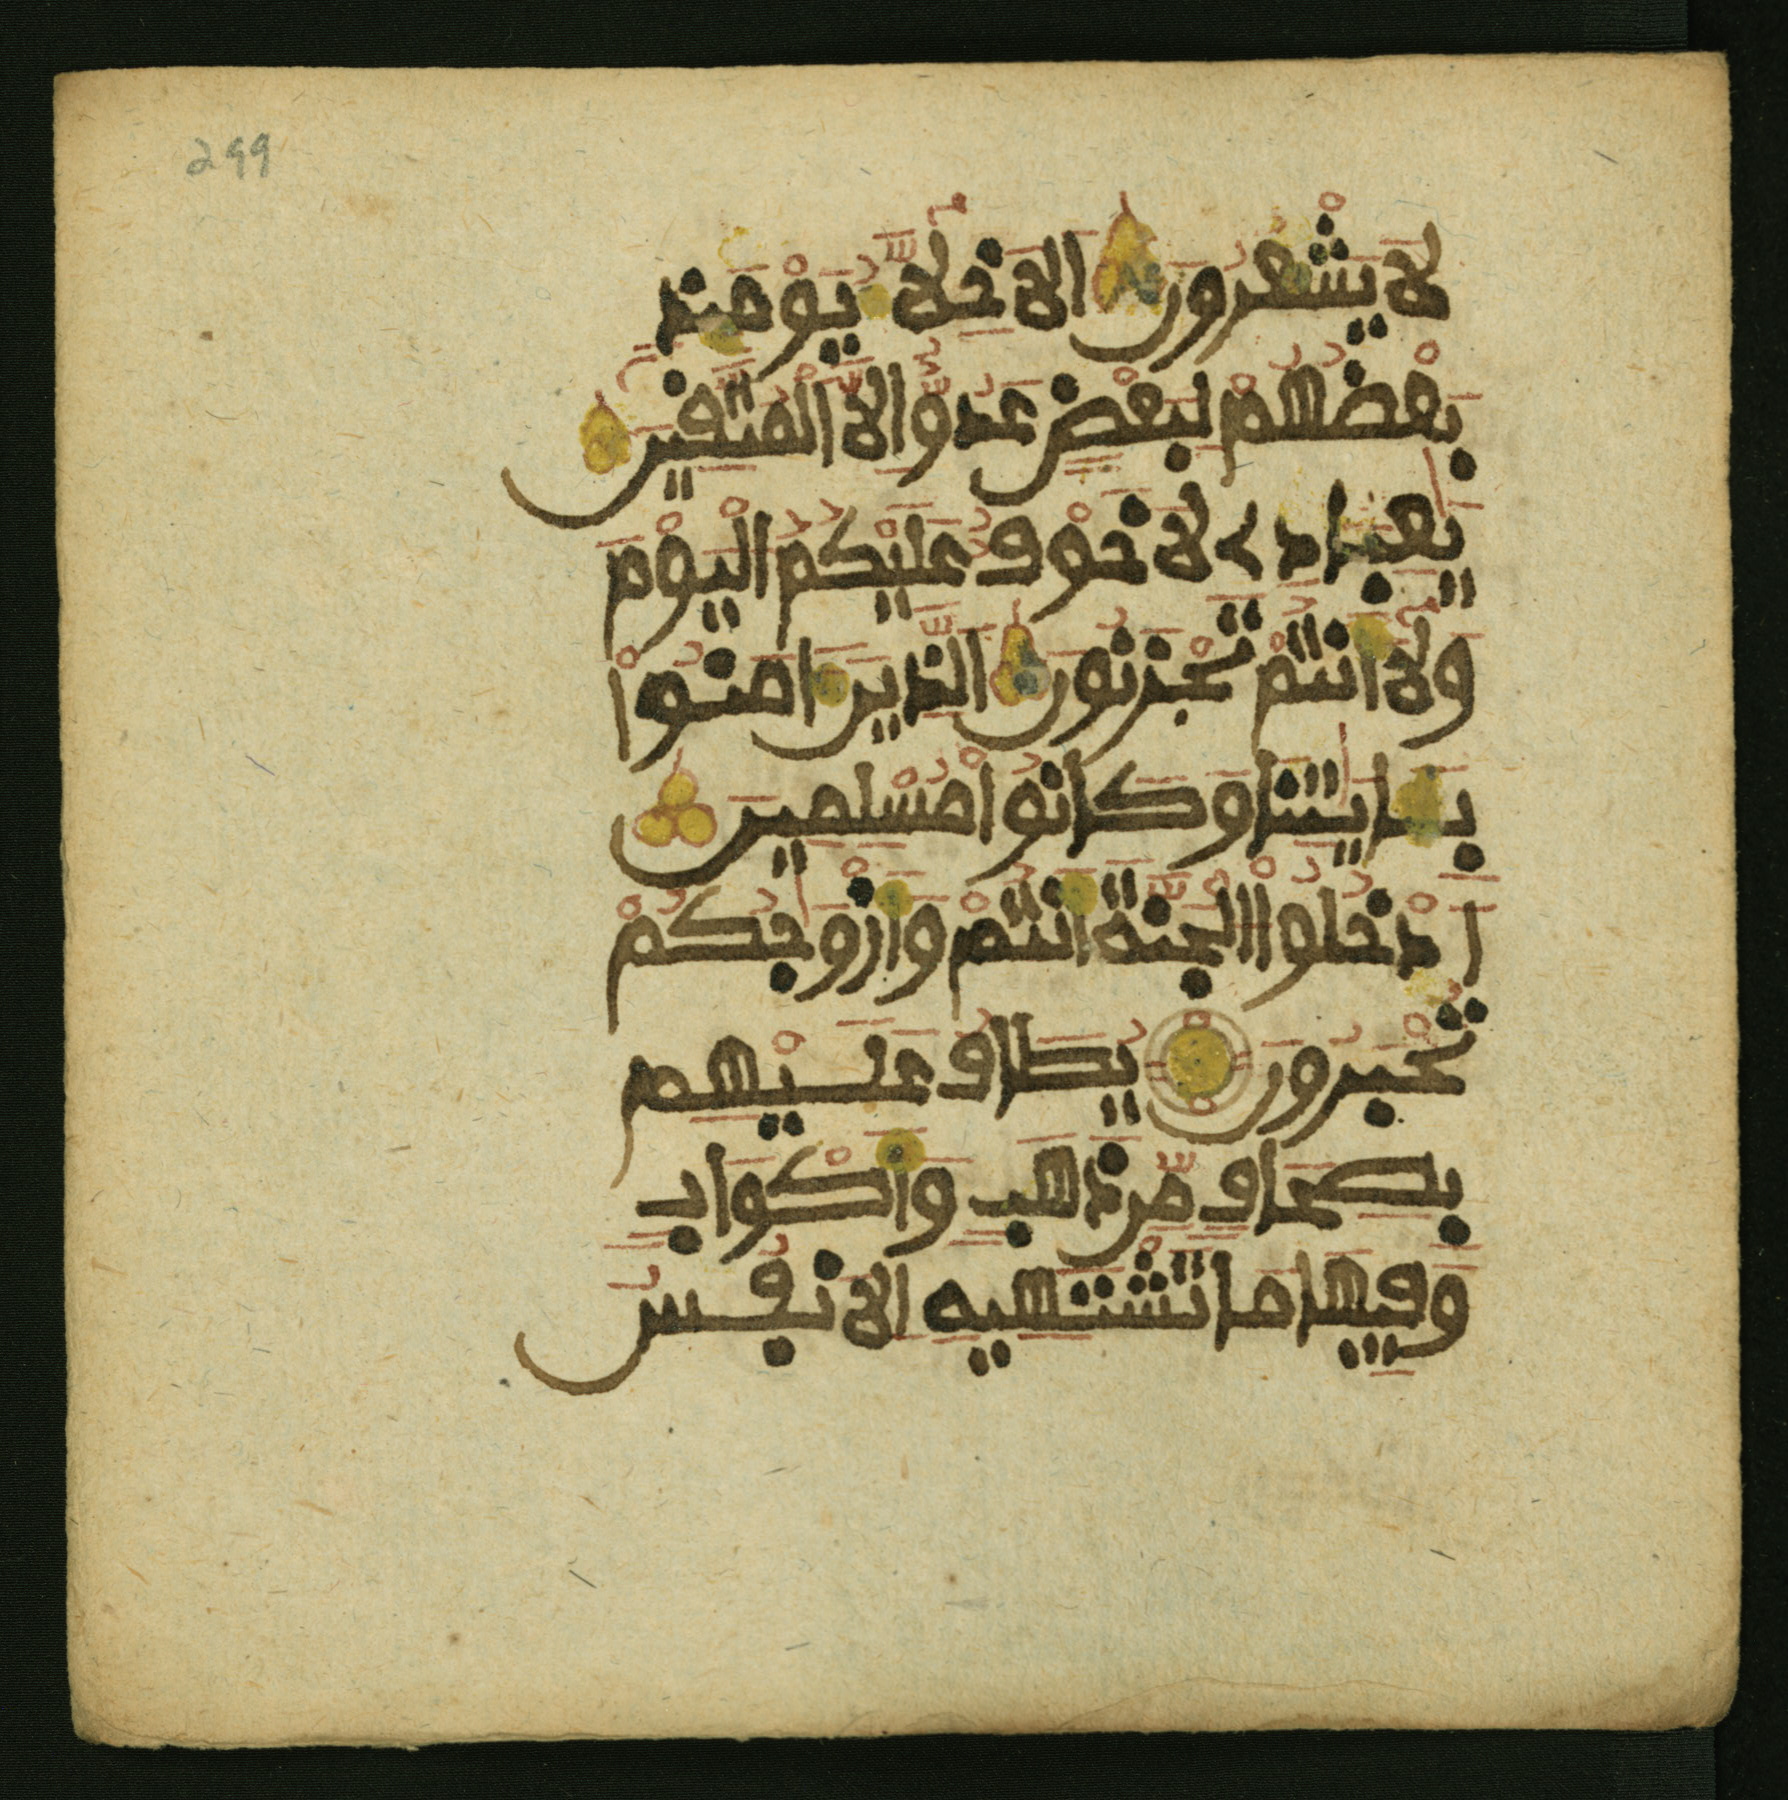 299
لَا يَشْعُرُونَ اَلَاخِلَّآءُ يَوْمَئِذِۭ
بَعْضُهُمْ لِبَعْضٍ عَدُوٌّ اِلَّا اَلْمُتَّقِينَ
يَٰعِبَادِے لَا خَوْفُ عَلَيْكُمُ الْيَوْمَ
وَلَآ أَنتُمْ تَحْزَنُونَ اَلَّذِينَ ءَامَنُواْ
بِـَٔايَٰتِنَا وَكَانُواْ مُسْلِمِينَ
اَدْخُلُواْ الْجَنَّةَ أَنتُمْ وَأَزْوَٰجُكُمْ
تُحْبَرُونَ يُطَافُ عَلَيْهِم
بِصِحَافٍ مِّن ذَهَبٍ وَأَكْوَابٍ
وَفِيهَا مَا تَشْتَهِيهِ الَانفُسُ